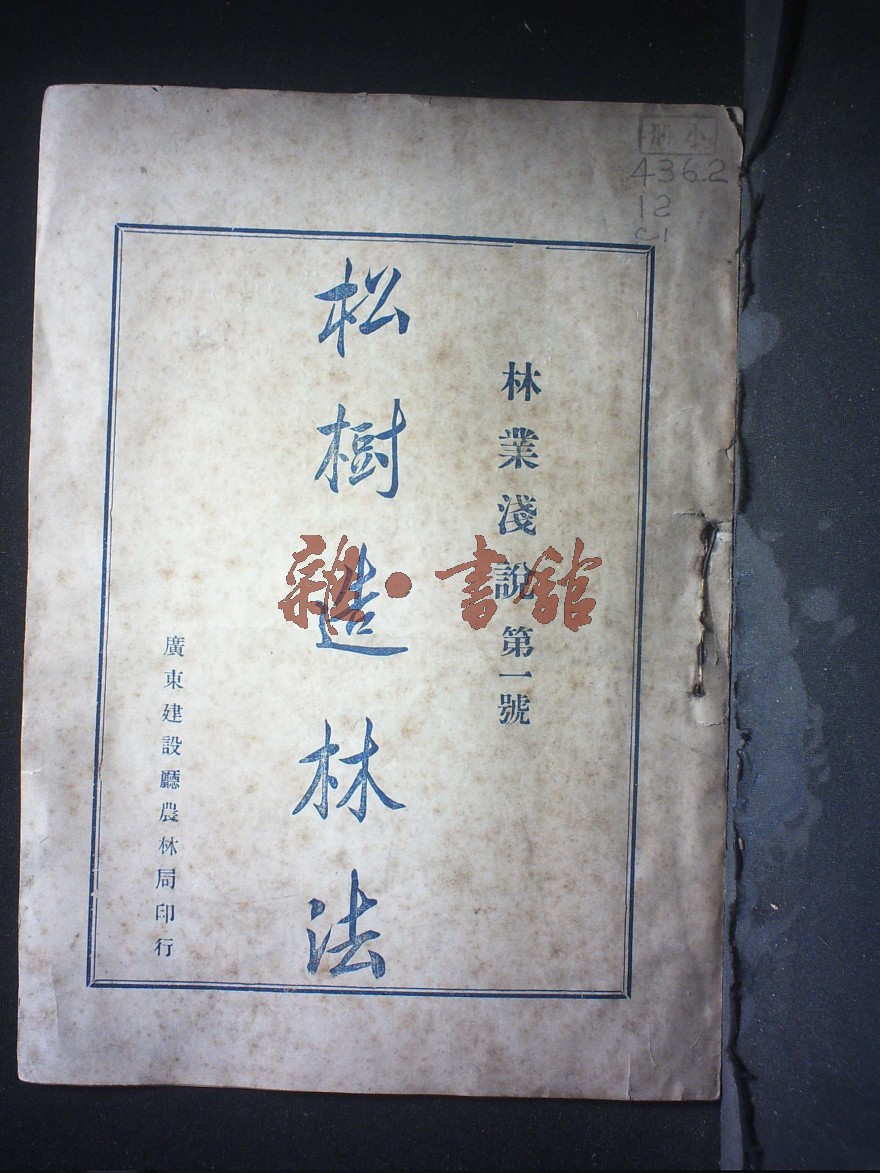 小冊
436.2
12
C.1
林業淺說第一號
松樹造林法
廣東建設廳農林局印行
雜·書館